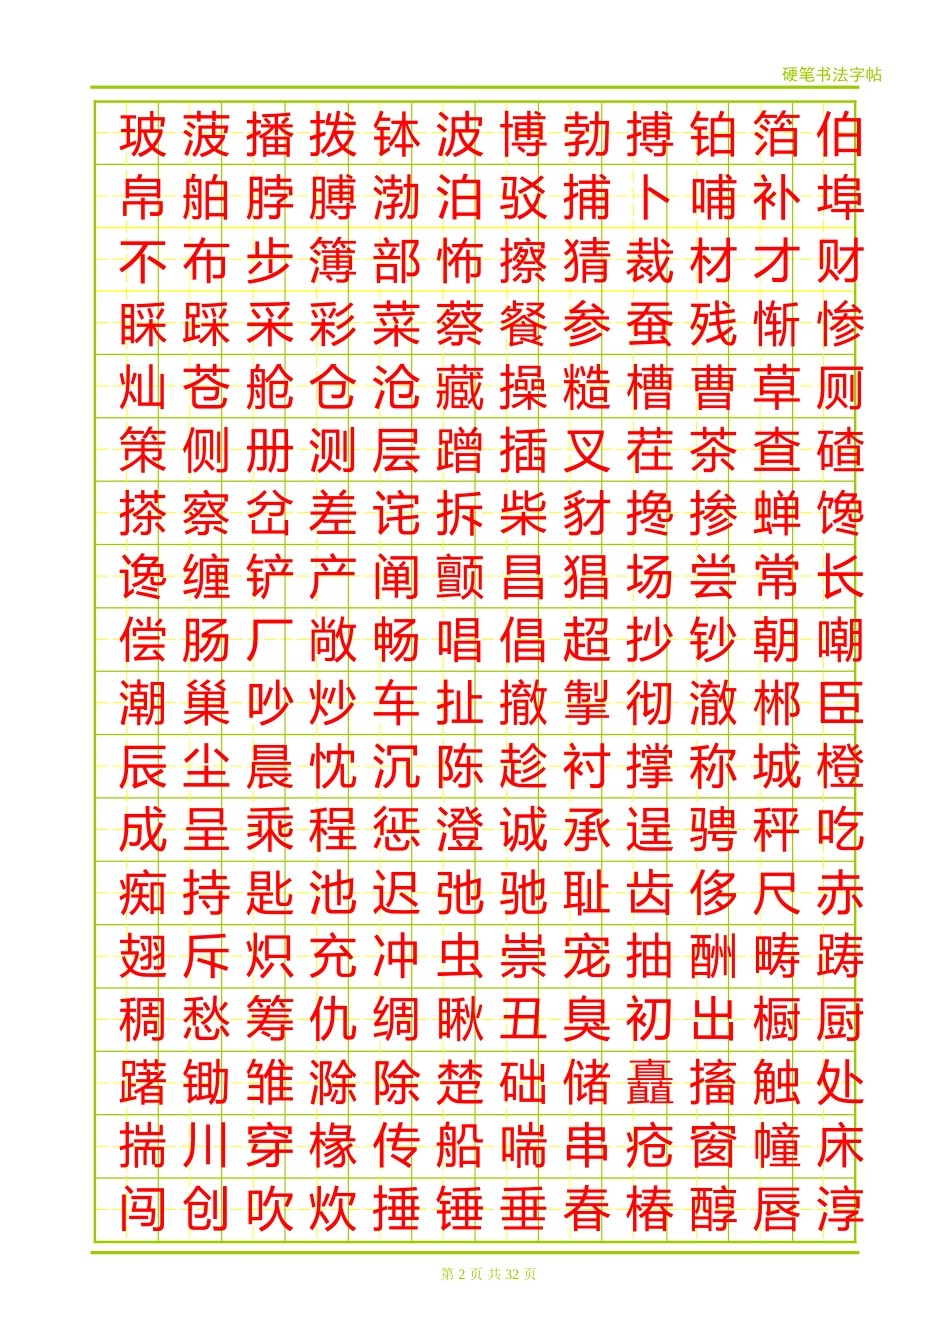 硬笔书法字帖
玻菠播拨钵波博勃搏铂箔伯
帛舶脖膊渤泊驳捕卜哺补埠
不布步簿部怖擦猜裁材才财
睬踩采彩菜蔡餐参蚕残惭惨
灿苍舱仓沧藏操糙槽曹草厕
策侧册测层蹭插叉茬茶查碴
搽察岔差诧拆柴豺搀掺蝉馋
谗缠铲产阐颤昌猖场尝常长
偿肠厂敞畅唱倡超抄钞朝嘲
潮巢吵炒车扯撤掣彻澈郴臣
辰尘晨忱沉陈趁衬撑称城橙
成呈乘程惩澄诚承逞骋秤吃
痴持匙池迟弛驰耻齿侈尺赤
翅斥炽充冲虫崇宠抽酬畴踌
稠愁筹仇绸瞅丑臭初出橱厨
躇锄雏滁除楚础储矗搐触处
揣川穿椽传船喘串疮窗幢床
闯创吹炊捶锤垂春椿醇唇淳
第 2 页 共 32 页